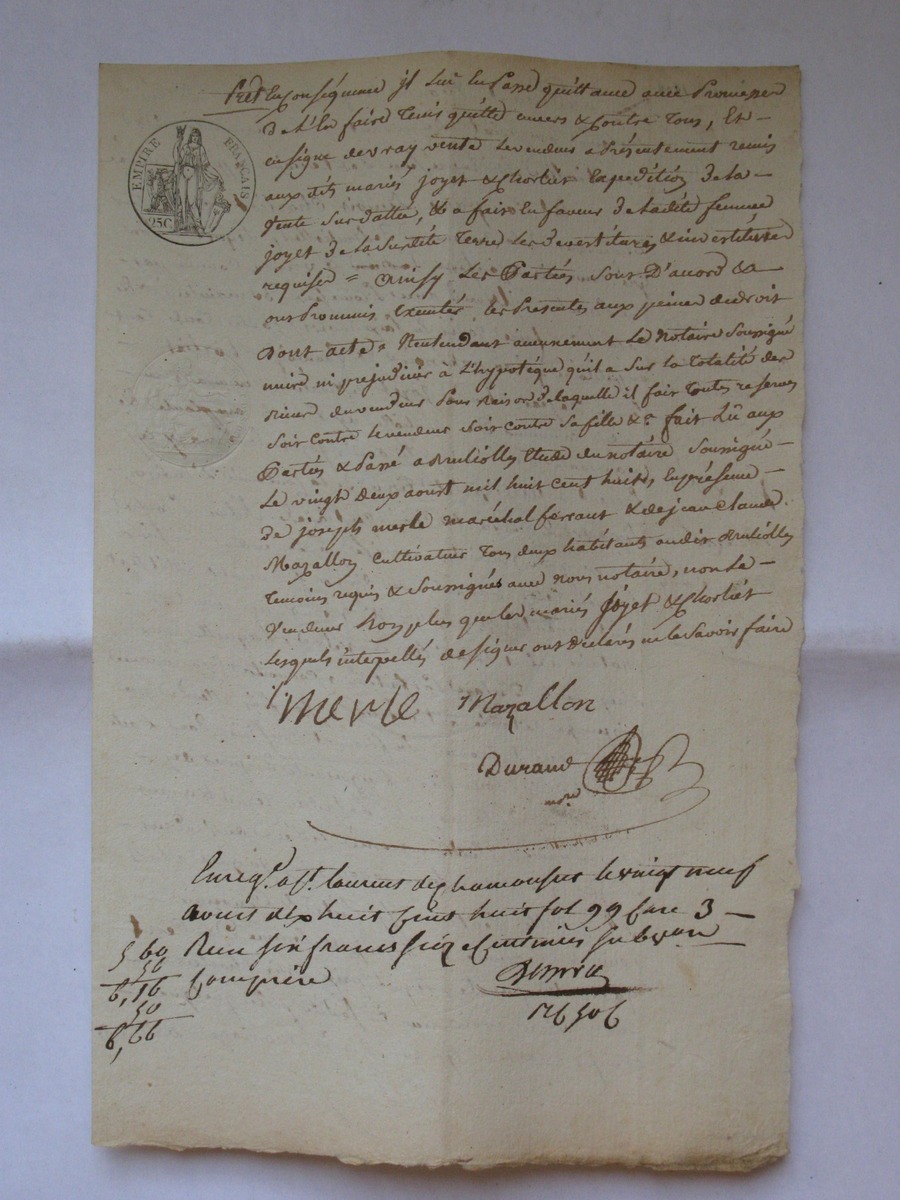 EMPIRE FRANÇAIS
25C
En Conséquence il lui en Passe quittance avec Promesse
de l'En faire Tenir quitte envers & Contre Tous, Et
en signe de vray vente le vendeur a Présentement remis
aux dits mariés joyet & Chorliet Expedition de la
vente sur datté, & a fait En faveur de ladite femme
joyet de la Surdite Terre les devestitures & investitures
requises = Ainsy les Parties Sont D'accord &
ont Promis Exécuter les Présentes aux peines de droit
Dont acte = N'entendant aucunement Le Notaire Soussigné
nuire ni prejudicier à L'hypotéque qu'il a Sur la Totalité des
Biens du vendeur Pour Raison de laquelle il fait Toutes reserves
Soit Contre le vendeur Soit contre Sa fille &ª fait Lû aux
Parties & Passé a Brulliolles Etude du notaire Soussigné
Le vingt deux aoust mil huit Cent huit, En présence
de joseph merle maréchal ferrant & de jean Claude
Mazallon Cultivateur Tous deux habitants audit Brulliolles
Temoins requis & Soussignés avec Nous notaire, non Le
Vendeur Non plus que les mariés joyet & Chorliet
Lesquels interpellés de signer ont Déclarés ne le Savoir faire
Merle Mazallon
Durand
nore
Enregé. a St. laurent de chamousset le vingt neuf
aout dix huit Cens huit fol 99 Case 3
Recu six francs seize Centimes subvon
Comprise
5 60
56
6,16
50
6,66